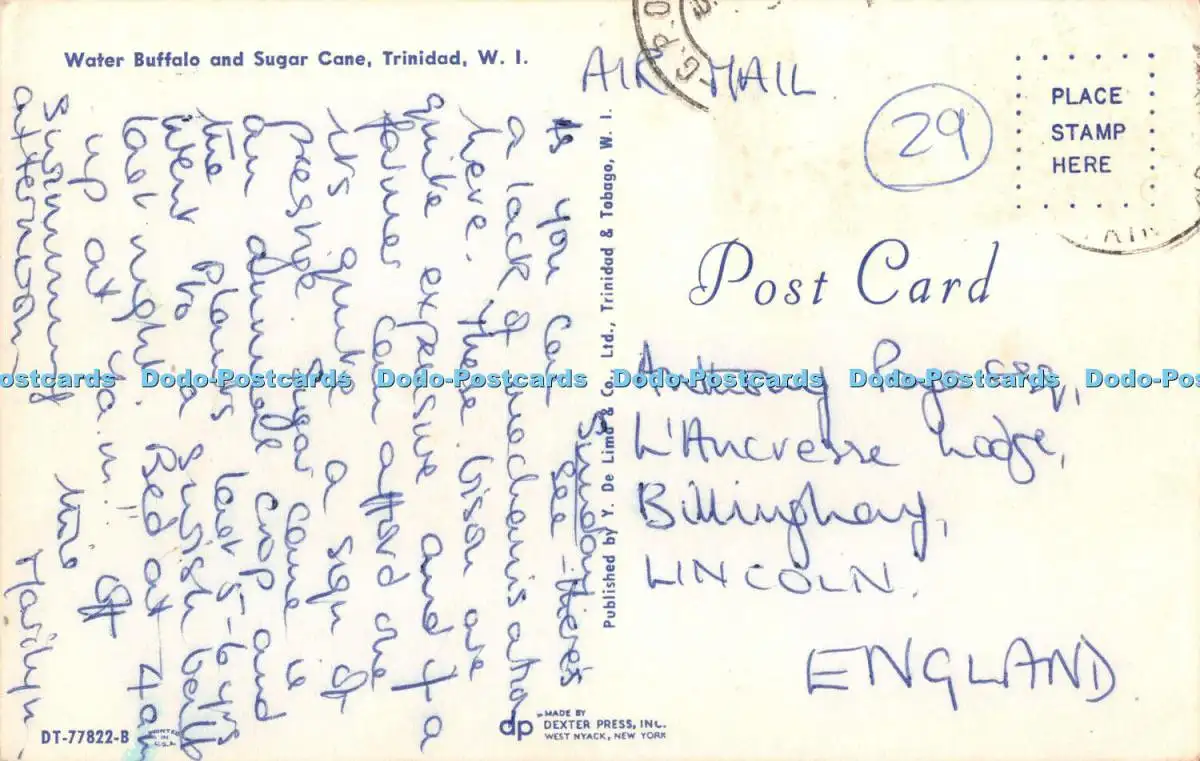 Water Buffalo and Sugar Cane, Trinidad, W. I.
AIR MAIL
G.P.O
29
PLACE
STAMP
HERE
Post Card
Anthony esq,
L'Ancresse Lodge,
Billinghay,
LINCOLN.
ENGLAND
Sunday
As you can see - there's
a lack of mechanisation
here. These bison are
quite expensive and if a
farmer can afford one
it's quite a sign of
prestige. Sugar cane is
an annual crop and
the plants last 5-6 yrs
Went to a Swish ball
last night. Bed at 4am
up at 9a.m!! Off
swimming this
afternoon. Marilyn
Published by Y. De Lima & Co., Ltd., Trinidad & Tobago, W. I.
DT-77822-B
PRINTED
IN
U.S.A.
dp
MADE BY
DEXTER PRESS, INC.
WEST NYACK, NEW YORK
Dodo-Postcards Dodo-Postcards Dodo-Postcards Dodo-Postcards Dodo-Postcards Dodo-Postcards